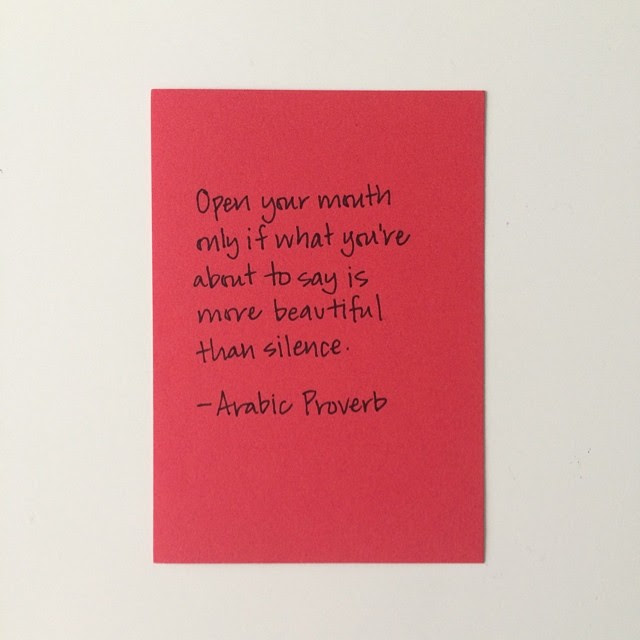 Open your mouth
only if what you're
about to say is
more beautiful
than silence.
-Arabic Proverb